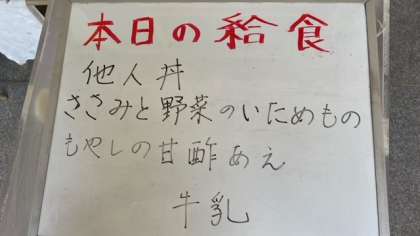 本日の給食
他人丼
ささみと野菜のいためもの
もやしの甘酢あえ
牛乳